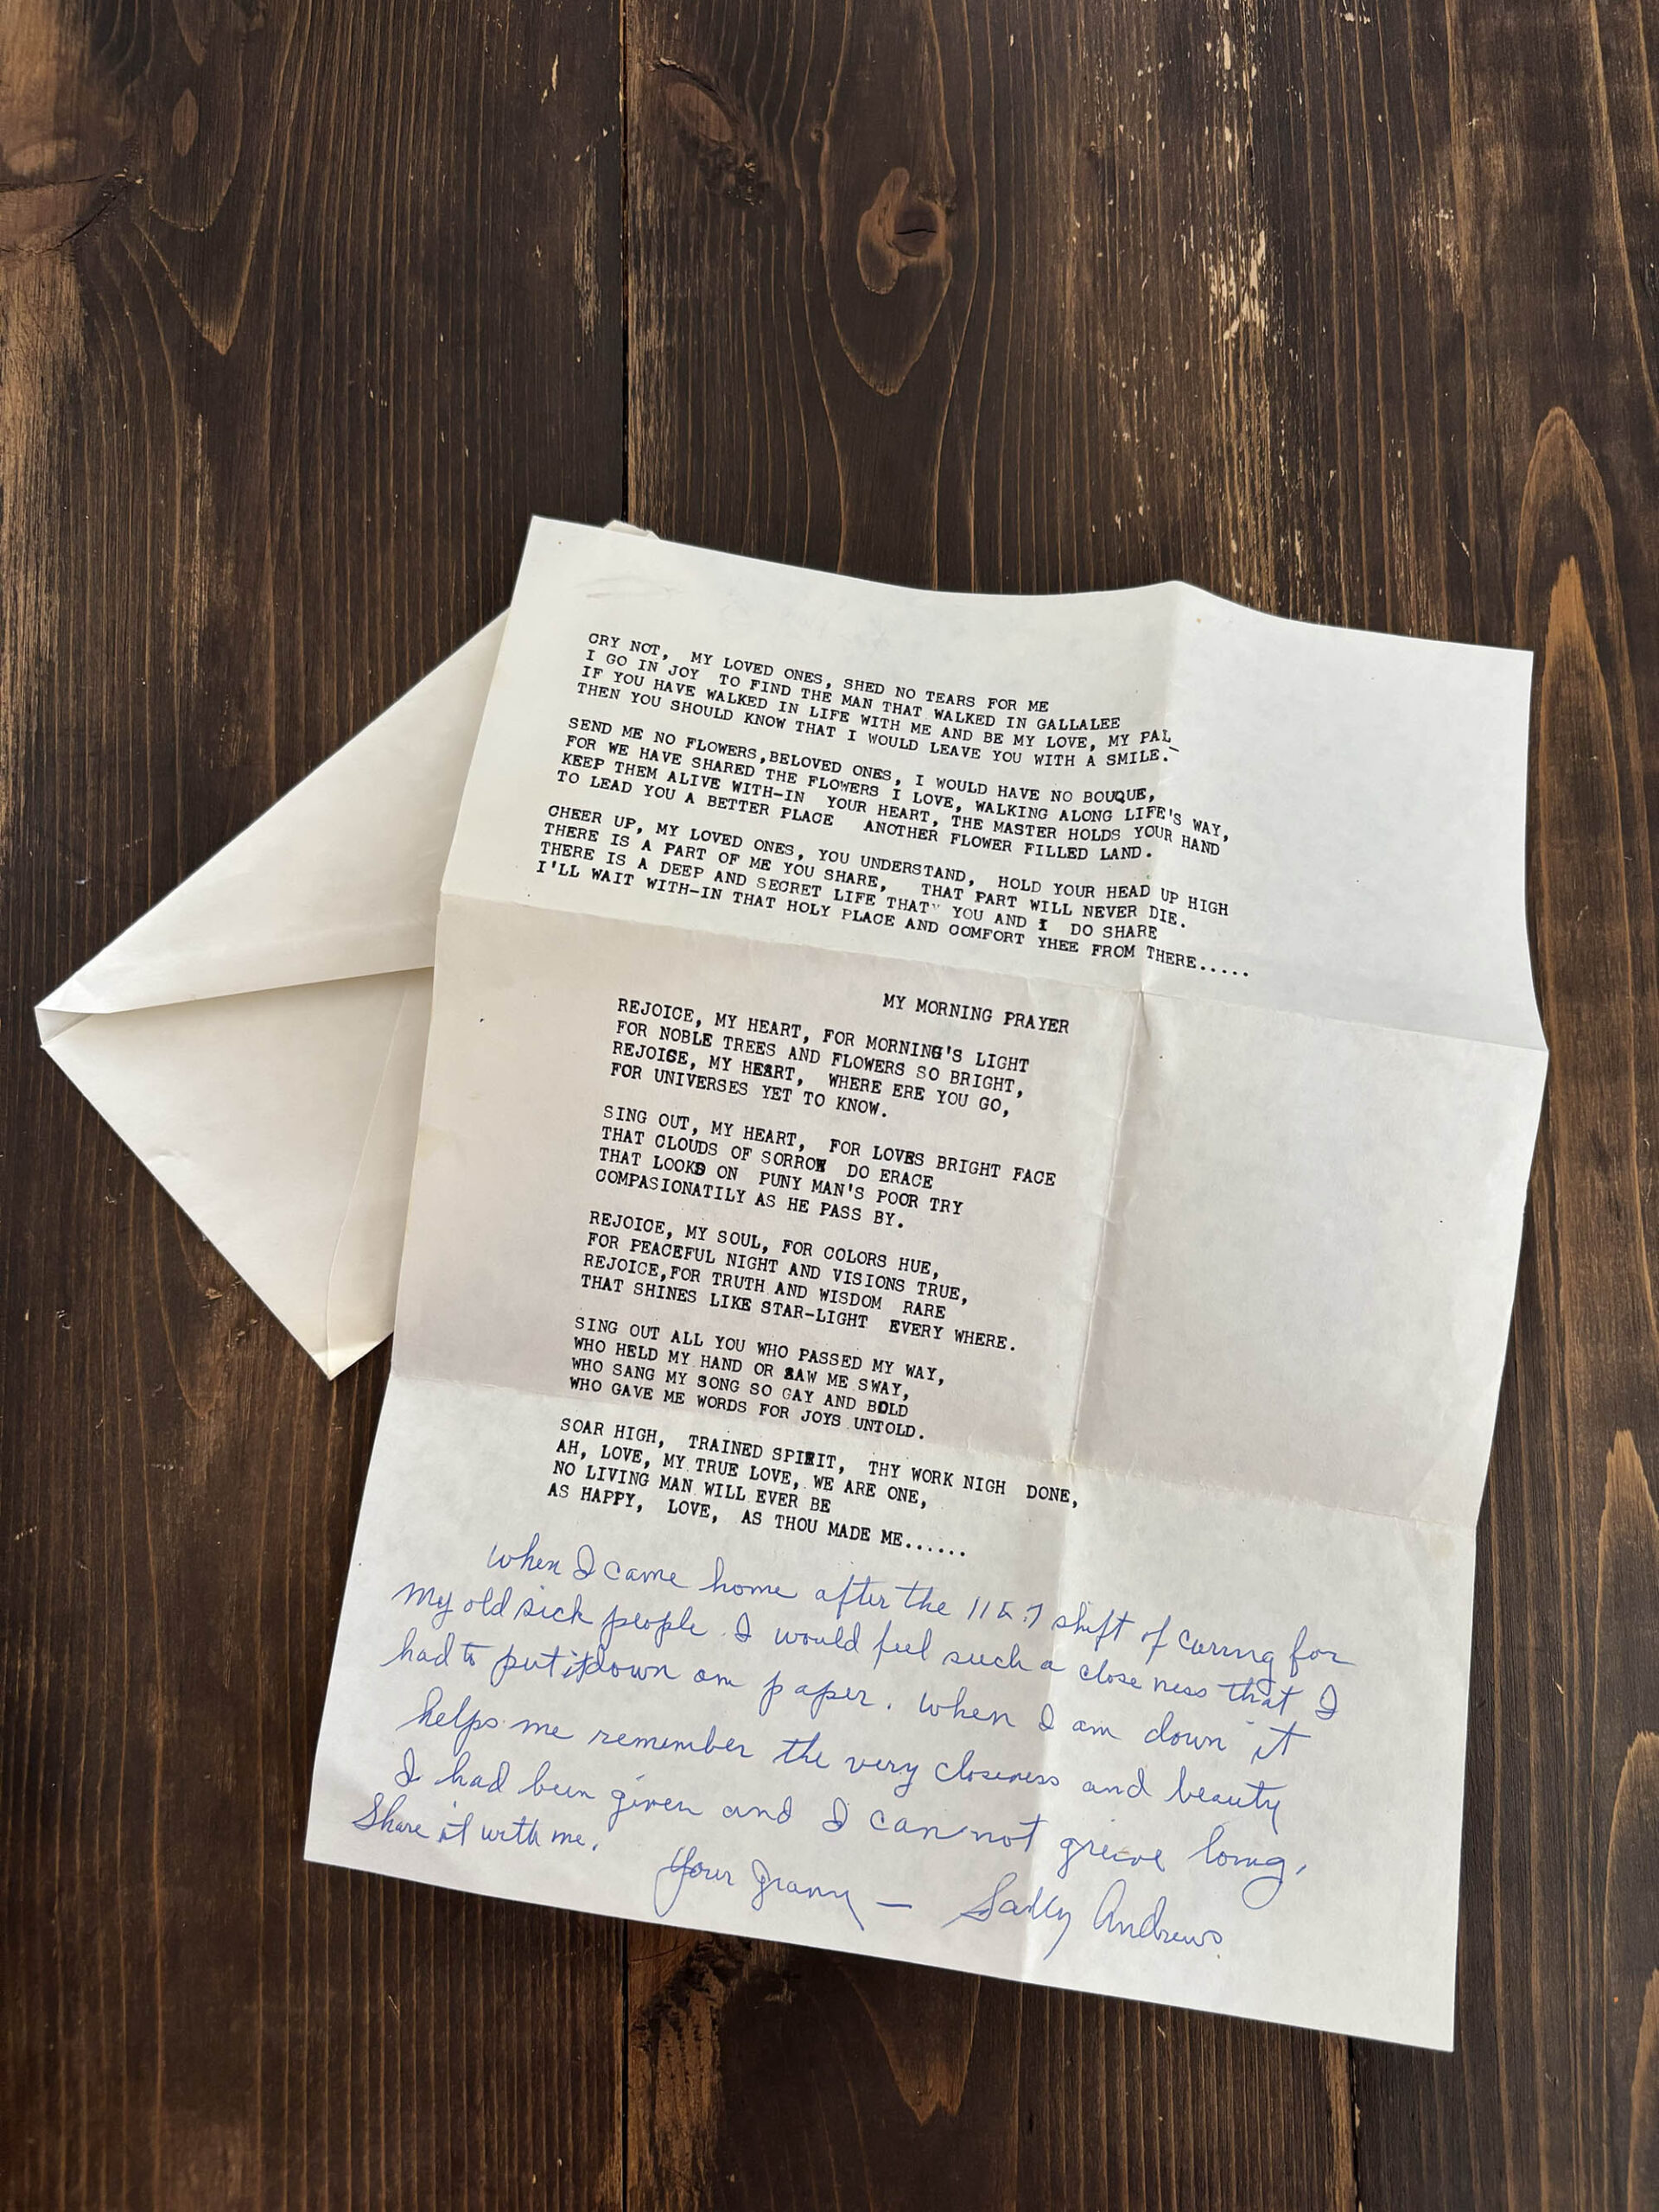 CRY NOT, MY LOVED ONES, SHED NO TEARS FOR ME
I GO IN JOY TO FIND THE MAN THAT WALKED IN GALLALEE
IF YOU HAVE WALKED IN LIFE WITH ME AND BE MY LOVE, MY PAL
THEN YOU SHOULD KNOW THAT I WOULD LEAVE YOU WITH A SMILE.
SEND ME NO FLOWERS,BELOVED ONES, I WOULD HAVE NO BOUQUE,
FOR WE HAVE SHARED THE FLOWERS I LOVE, WALKING ALONG LIFE'S WAY,
KEEP THEM ALIVE WITH-IN YOUR HEART, THE MASTER HOLDS YOUR HAND
TO LEAD YOU A BETTER PLACE ANOTHER FLOWER FILLED LAND.
CHEER UP, MY LOVED ONES, YOU UNDERSTAND, HOLD YOUR HEAD UP HIGH
THERE IS A PART OF ME YOU SHARE, THAT PART WILL NEVER DIE.
THERE IS A DEEP AND SECRET LIFE THAT YOU AND I DO SHARE
I'LL WAIT WITH-IN THAT HOLY PLACE AND COMFORT YHEE FROM THERE.....
MY MORNING PRAYER
REJOICE, MY HEART, FOR MORNING'S LIGHT
FOR NOBLE TREES AND FLOWERS SO BRIGHT,
REJOICE, MY HEART, WHERE ERE YOU GO,
FOR UNIVERSES YET TO KNOW.
SING OUT, MY HEART, FOR LOVES BRIGHT FACE
THAT CLOUDS OF SORROW DO ERACE
THAT LOOKS ON PUNY MAN'S POOR TRY
COMPASIONATILY AS HE PASS BY.
REJOICE, MY SOUL, FOR COLORS HUE,
FOR PEACEFUL NIGHT AND VISIONS TRUE,
REJOICE,FOR TRUTH AND WISDOM RARE
THAT SHINES LIKE STAR-LIGHT EVERY WHERE.
SING OUT ALL YOU WHO PASSED MY WAY,
WHO HELD MY HAND OR SAW ME SWAY,
WHO SANG MY SONG SO GAY AND BOLD
WHO GAVE ME WORDS FOR JOYS UNTOLD.
SOAR HIGH, TRAINED SPIRIT, THY WORK NIGH DONE,
AH, LOVE, MY TRUE LOVE, WE ARE ONE,
NO LIVING MAN WILL EVER BE
AS HAPPY, LOVE, AS THOU MADE ME......
When I came home after the 11 to 7 shift of caring for
my old sick people. I would feel such a closeness that I
had to put it down on paper. When I am down it
helps me remember the very closeness and beauty
I had been given and I can not grieve long.
Share it with me.
Your Granny — Sally Andrews.